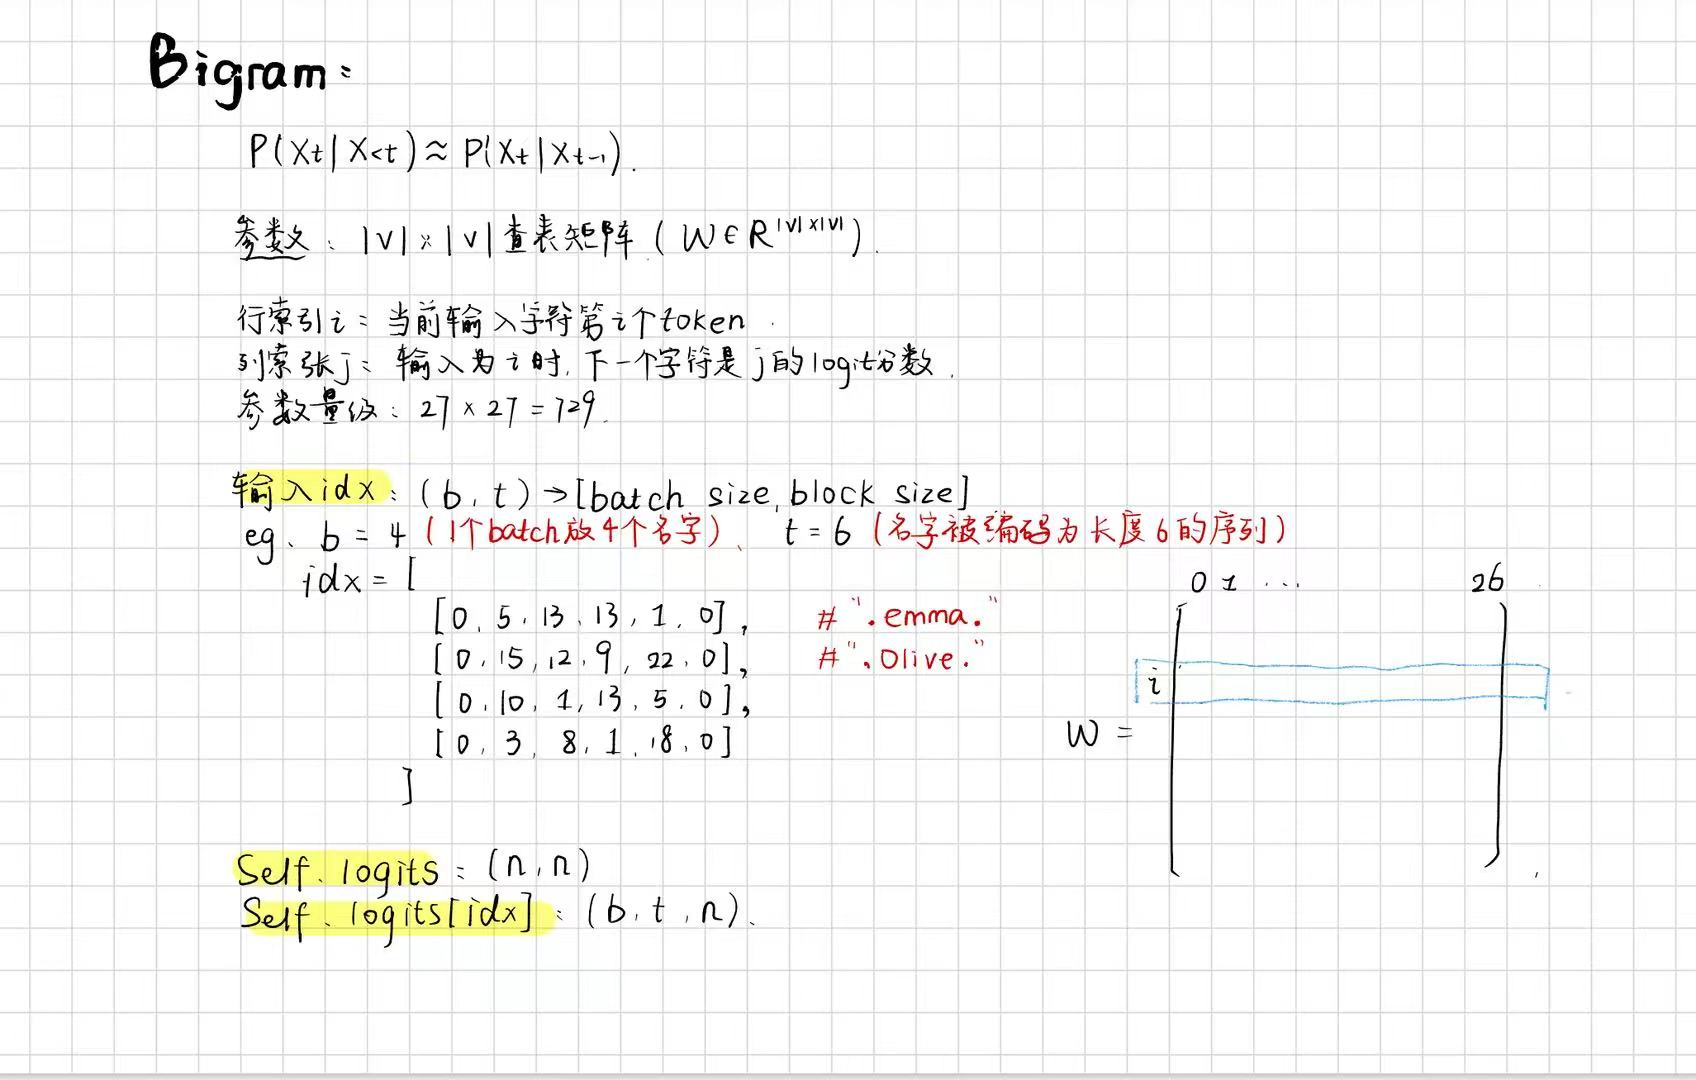 Bigram:
P(Xt|X<t) ≈ P(Xt|Xt-1).
参数: |V|×|V|查表矩阵 (W∈R^|V|×|V|).
行索引i: 当前输入字符第i个token.
列索张j: 输入为i时, 下一个字符是j的logit分数.
参数量级: 27×27=729.
输入idx: (b, t)→[batch size, block size]
eg. b=4 (1个batch放4个名字)、 t=6 (名字被编码为长度6的序列)
idx = [
[0, 5, 13, 13, 1, 0], # ".emma."
[0, 15, 12, 9, 22, 0], # ".Olive."
[0, 10, 1, 13, 5, 0],
[0, 3, 8, 1, 18, 0]
]
0 1 ... 26
i
W =
Self.logits: (n, n)
Self.logits[idx]: (b, t, n).